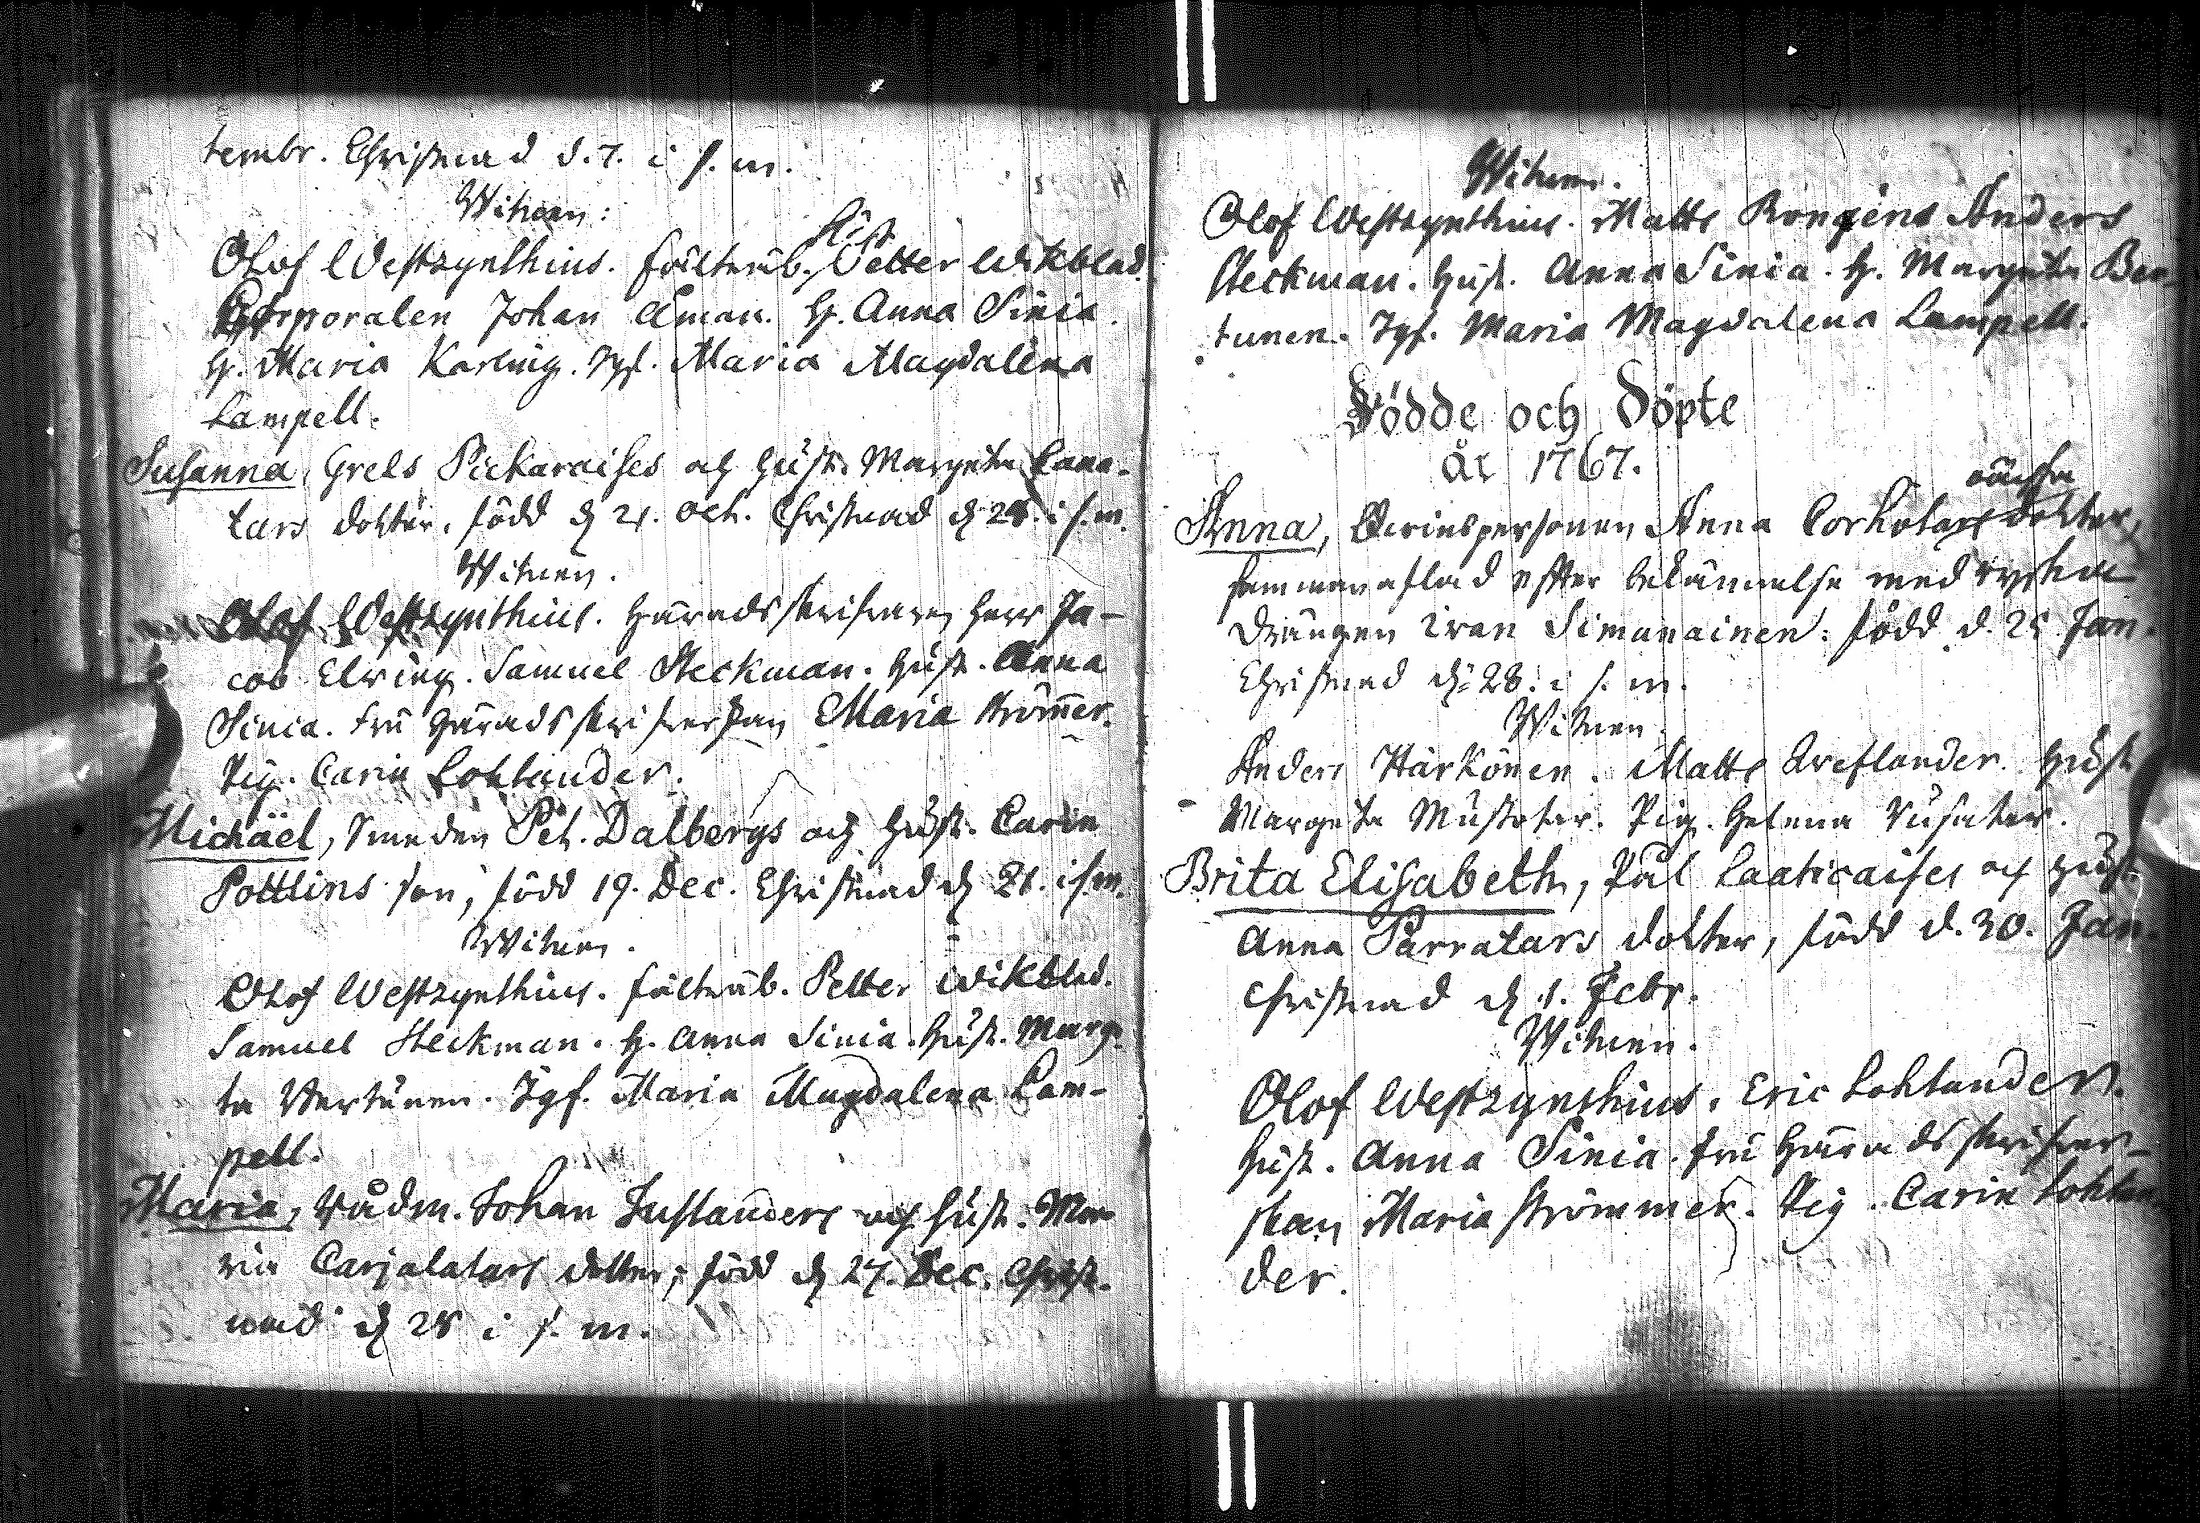 tembr. Christnad d. 7. i s. m.
Witnen:
Olof Westzynthius. fältskäb. Petter Wikblad.
Corporalen Johan Aman. H. Anna Sinia.
H. Maria Karling. Jgf. Maria Magdalena
Lampell.
Susanna, Grels Pickaraises och hust. Margeta Lana-
tars dotter, född d 21. Oct. Christnad d 28. i s. m.
Witnen.
Olof Westzynthius. Häradsskrifvaren Herr Ja-
cob Elving. Samuel Steckman. Hust. Anna
Sinia. Fru Häradsskrifverskan Maria Strömer.
Pig. Carin Lohlander.
Michäel, Smeden Pet. Dalbergs och Hust. Carin
Pottlins son, född 19. Dec. Christnad d 21. i s. m.
Witnen.
Olof Westzynthius. Petter Wikblad.
Samuel Steckman. H. Anna Sinia. Hust. Marge-
ta Vertunen. Jgf. Maria Magdalena Lam-
pell.
Maria, Rådm. Johan Juslanders och Hust. Ma-
ria Carjalatars dotter, född d 27. Dec. Christ-
nad d 28 i s. m.
Witnen.
Olof Westzynthius. Matts Anders
Steckman. Hust. Anna Sinia. H. Margeta Ver-
tunen. Jgf. Maria Magdalena Lampell.
Födde och Döpte
år 1767.
oächta
Anna, Qvinspersonen Anna Corhotars dotter,
sammanaflad efter bekännelse med ryska
Drängen Ivan Simanainen: född d. 25 Jan.
Christnad d. 28. i s. m.
Witnen.
Anders Härkönen. Matts Qveflander. Hust.
Margeta Mustotar. Pig. Helena Rusatar.
Brita Elisabeth, Pål Laaticaises och Hust.
Anna Parratars dotter, född d. 30. Jan.
Christnad d 1. Febr.
Witnen.
Olof Westzynthius. Eric Lohlander.
Hust. Anna Sinia. Fru Häradsskrifver-
skan Maria Strömmer. Pig. Carin Lohlan
der.